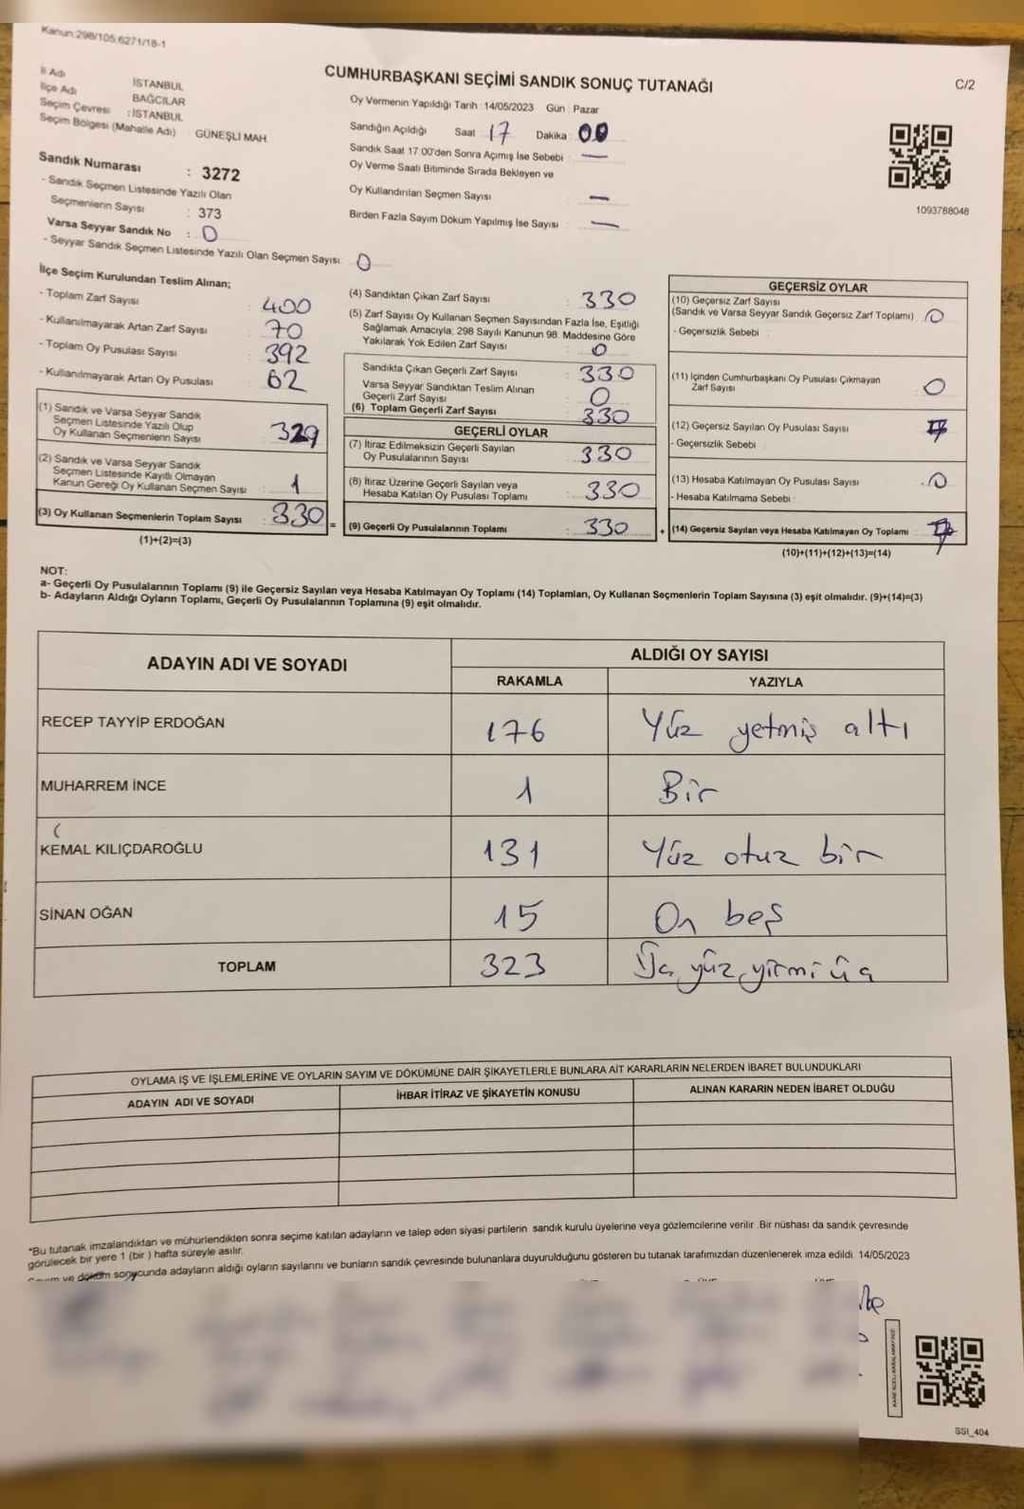 Kanun:298/105;6271/18-1
CUMHURBAŞKANI SEÇİMİ SANDIK SONUÇ TUTANAĞI
C/2
İl Adı : İSTANBUL
İlçe Adı BAĞCILAR
Seçim Çevresi : İSTANBUL
Seçim Bölgesi (Mahalle Adı) GÜNEŞLİ MAH
Sandık Numarası : 3272
- Sandık Seçmen Listesinde Yazılı Olan
Seçmenlerin Sayısı : 373
Varsa Seyyar Sandık No : 0
- Seyyar Sandık Seçmen Listesinde Yazılı Olan Seçmen Sayısı 0
Oy Vermenin Yapıldığı Tarih :14/05/2023 Gün : Pazar
Sandığın Açıldığı Saat 17 Dakika 00
Sandık Saat 17:00'den Sonra Açımış İse Sebebi : —
Oy Verme Saati Bitiminde Sırada Bekleyen ve
Oy Kullandırılan Seçmen Sayısı : —
Birden Fazla Sayım Döküm Yapılmış İse Sayısı : —
1093788048
İlçe Seçim Kurulundan Teslim Alınan;
- Toplam Zarf Sayısı : 400
- Kullanılmayarak Artan Zarf Sayısı : 70
- Toplam Oy Pusulası Sayısı : 392
- Kullanılmayarak Artan Oy Pusulası : 62
(1) Sandık ve Varsa Seyyar Sandık
Seçmen Listesinde Yazılı Olup
Oy Kullanan Seçmenlerin Sayısı : 329
(2) Sandık ve Varsa Seyyar Sandık
Seçmen Listesinde Kayıtlı Olmayan
Kanun Gereği Oy Kullanan Seçmen Sayısı : 1
(3) Oy Kullanan Seçmenlerin Toplam Sayısı : 330 =
(1)+(2)=(3)
(4) Sandıktan Çıkan Zarf Sayısı : 330
(5) Zarf Sayısı Oy Kullanan Seçmen Sayısından Fazla İse, Eşitliği
Sağlamak Amacıyla; 298 Sayılı Kanunun 98. Maddesine Göre
Yakılarak Yok Edilen Zarf Sayısı : 0
Sandıkta Çıkan Geçerli Zarf Sayısı : 330
Varsa Seyyar Sandıktan Teslim Alınan
Geçerli Zarf Sayısı : 0
(6) Toplam Geçerli Zarf Sayısı : 330
GEÇERLİ OYLAR
(7) İtiraz Edilmeksizin Geçerli Sayılan
Oy Pusulalarının Sayısı : 330
(8) İtiraz Üzerine Geçerli Sayılan veya
Hesaba Katılan Oy Pusulası Toplamı : 330
(9) Geçerli Oy Pusulalarının Toplamı : 330 +
GEÇERSİZ OYLAR
(10) Geçersiz Zarf Sayısı
(Sandık ve Varsa Seyyar Sandık Geçersiz Zarf Toplamı) : 0
- Geçersizlik Sebebi :
(11) İçinden Cumhurbaşkanı Oy Pusulası Çıkmayan
Zarf Sayısı : 0
(12) Geçersiz Sayılan Oy Pusulası Sayısı : 7
- Geçersizlik Sebebi :
(13) Hesaba Katılmayan Oy Pusulası Sayısı : 0
- Hesaba Katılmama Sebebi :
(14) Geçersiz Sayılan veya Hesaba Katılmayan Oy Toplamı : 7
(10)+(11)+(12)+(13)=(14)
NOT:
a- Geçerli Oy Pusulalarının Toplamı (9) ile Geçersiz Sayılan veya Hesaba Katılmayan Oy Toplamı (14) Toplamları, Oy Kullanan Seçmenlerin Toplam Sayısına (3) eşit olmalıdır. (9)+(14)=(3)
b- Adayların Aldığı Oyların Toplamı, Geçerli Oy Pusulalarının Toplamına (9) eşit olmalıdır.
ADAYIN ADI VE SOYADI
ALDIĞI OY SAYISI
RAKAMLA YAZIYLA
RECEP TAYYİP ERDOĞAN 176 Yüz yetmiş altı
MUHARREM İNCE 1 Bir
KEMAL KILIÇDAROĞLU 131 Yüz otuz bir
SİNAN OĞAN 15 On beş
TOPLAM 323 Üç yüz yirmi üç
OYLAMA İŞ VE İŞLEMLERİNE VE OYLARIN SAYIM VE DÖKÜMÜNE DAİR ŞİKAYETLERLE BUNLARA AİT KARARLARIN NELERDEN İBARET BULUNDUKLARI
ADAYIN ADI VE SOYADI İHBAR İTİRAZ VE ŞİKAYETİN KONUSU ALINAN KARARIN NEDEN İBARET OLDUĞU
*Bu tutanak imzalandıktan ve mühürlendikten sonra seçime katılan adayların ve talep eden siyasi partilerin sandık kurulu üyelerine veya gözlemcilerine verilir .Bir nüshası da sandık çevresinde
görülecek bir yere 1 (bir ) hafta süreyle asılır.
ve döküm sonucunda adayların aldığı oyların sayılarını ve bunların sandık çevresinde bulunanlara duyurulduğunu gösteren bu tutanak tarafımızdan düzenlenerek imza edildi. 14/05/2023
SSI_404